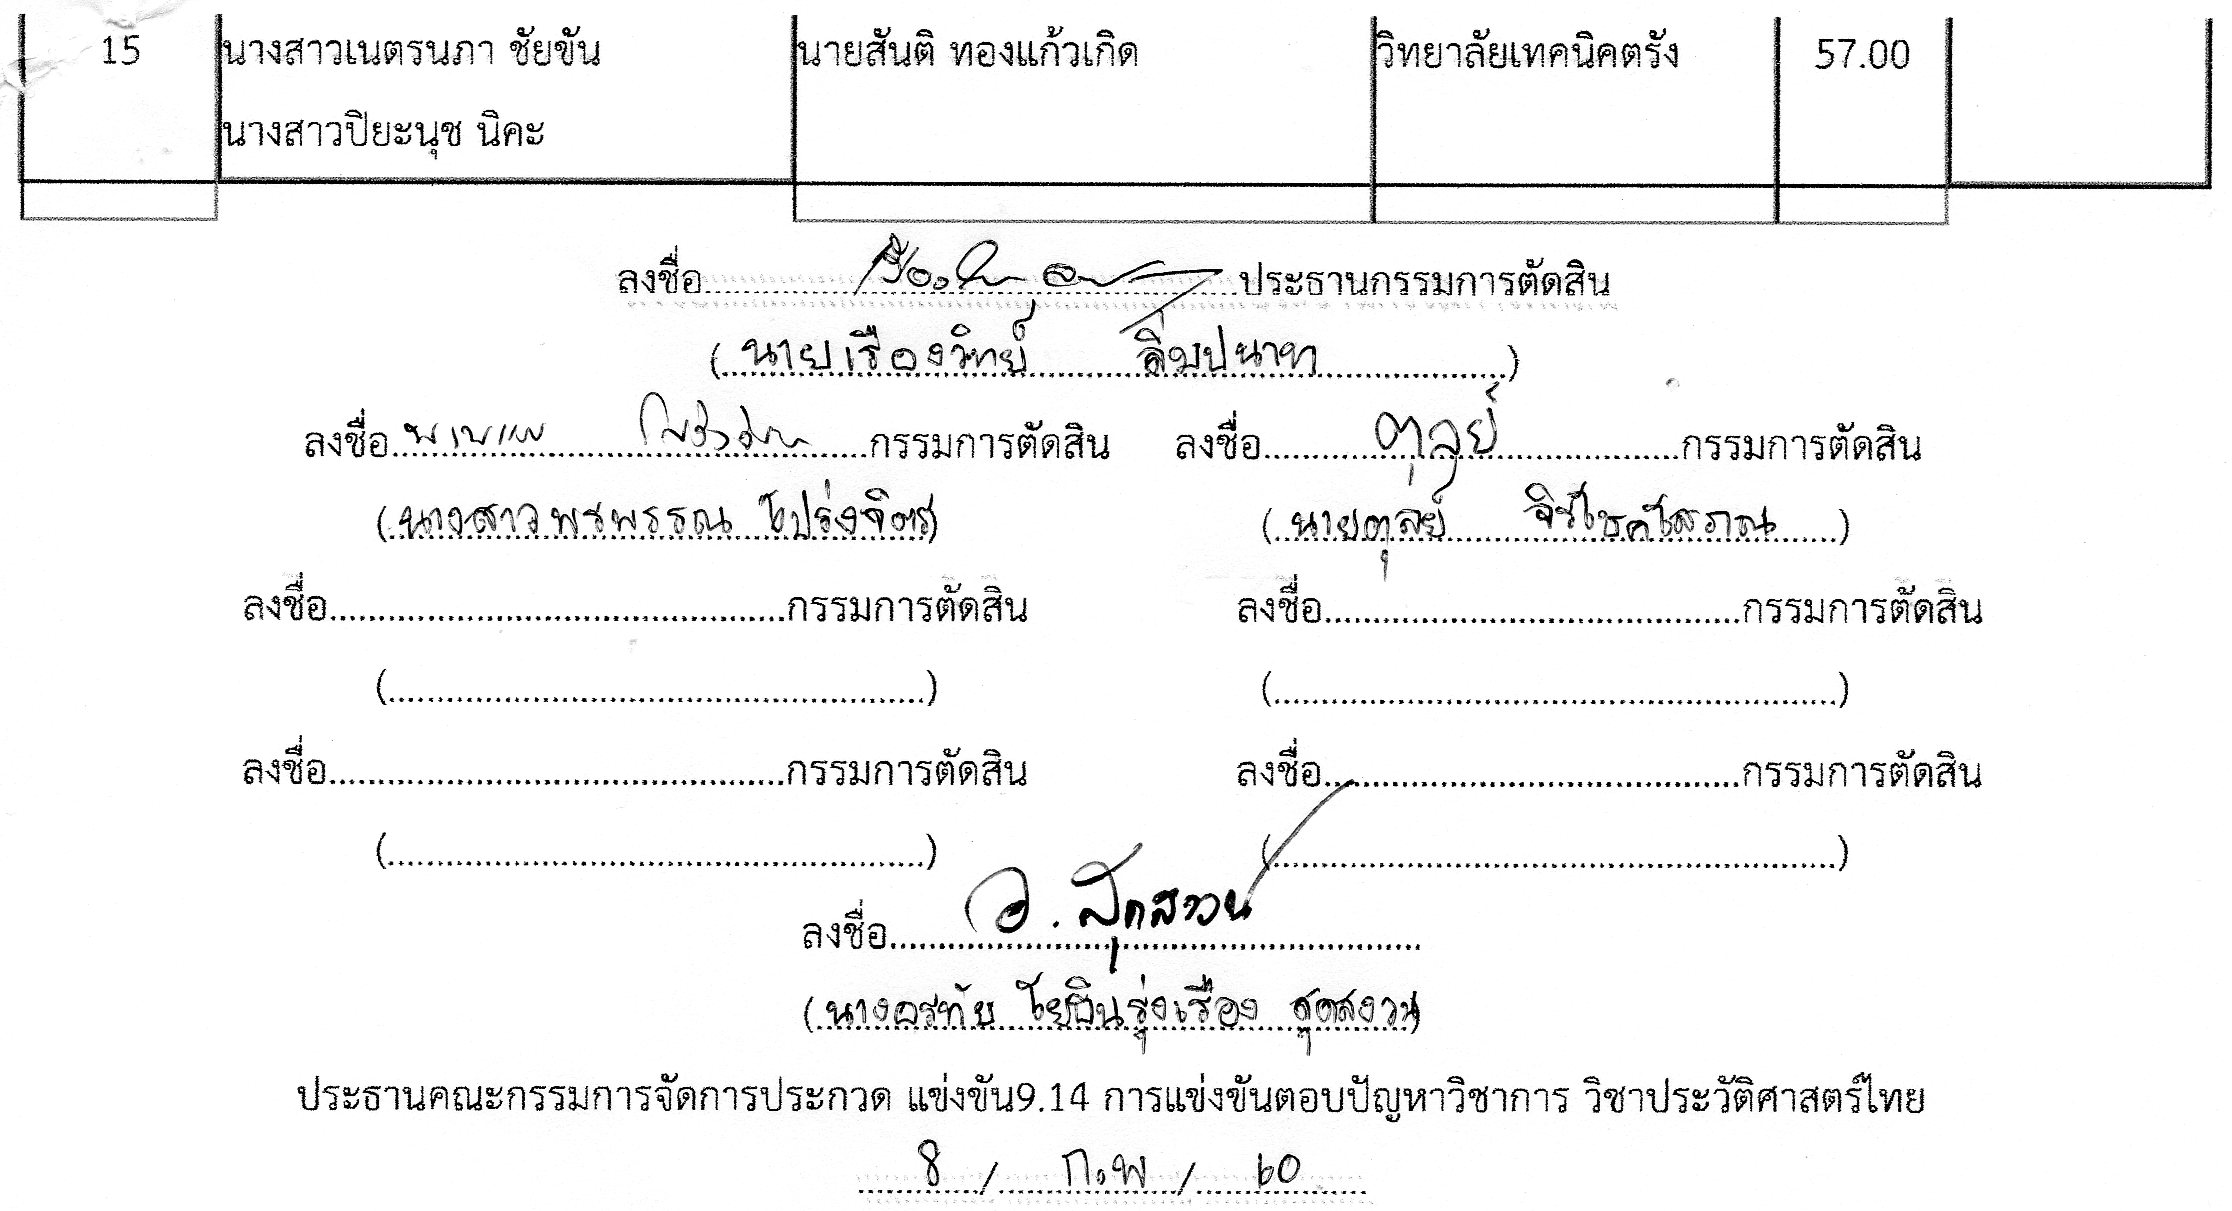 15 นางสาวเนตรนภา ชัยขัน นายสันติ ทองแก้วเกิด วิทยาลัยเทคนิคตรัง 57.00
นางสาวปิยะนุช นิคะ
ลงชื่อ........................................ประธานกรรมการตัดสิน
(นายเรืองวิทย์ ลิ่มปนาท)
ลงชื่อ........................................กรรมการตัดสิน ลงชื่อ ตุลย์ กรรมการตัดสิน
(นางสาวพรพรรณ โปร่งจิตร) (นายตุลย์ จิรโชคโสภณ)
ลงชื่อ........................................กรรมการตัดสิน ลงชื่อ........................................กรรมการตัดสิน
(........................................) (........................................)
ลงชื่อ........................................กรรมการตัดสิน ลงชื่อ........................................กรรมการตัดสิน
(........................................) (........................................)
ลงชื่อ อ. สุดสงวน
(นางอรทัย โยธินรุ่งเรือง สุดสงวน)
ประธานคณะกรรมการจัดการประกวด แข่งขัน9.14 การแข่งขันตอบปัญหาวิชาการ วิชาประวัติศาสตร์ไทย
8 / ก.พ / 60